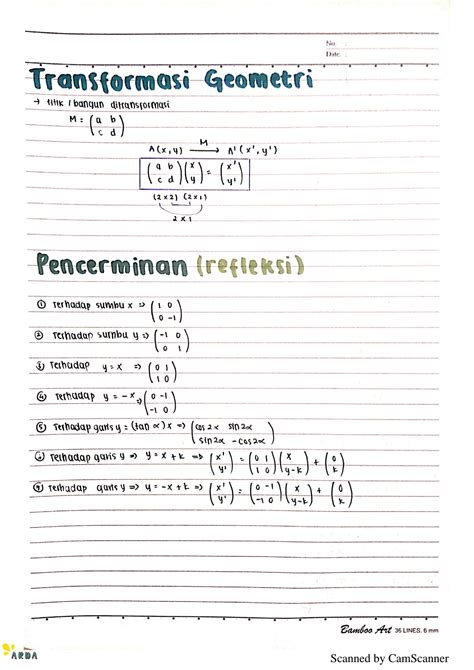 No :
Date :
Transformasi Geometri
→ titik / bangun ditransformasi
M = (a b
c d)
M
A(x,y) ⟶ A'(x', y')
(a b
c d) (x
y) = (x'
y')
(2x2) (2x1)
2 x 1
Pencerminan (refleksi)
① Terhadap sumbu x => (1 0
0 -1)
② Terhadap sumbu y => (-1 0
0 1)
③ Terhadap y = x => (0 1
1 0)
④ Terhadap y = -x => (0 -1
-1 0)
⑤ Terhadap garis y = (tan α) x => (cos 2α sin 2α
sin 2α -cos 2α)
⑥ Terhadap garis y => y = x + k => (x'
y') = (0 1
1 0) (x
y-k) + (0
k)
⑦ Terhadap garis y => y = -x + k => (x'
y') = (0 -1
-1 0) (x
y-k) + (0
k)
Bamboo Art 36 LINES, 6 mm
ARDA
Scanned by CamScanner